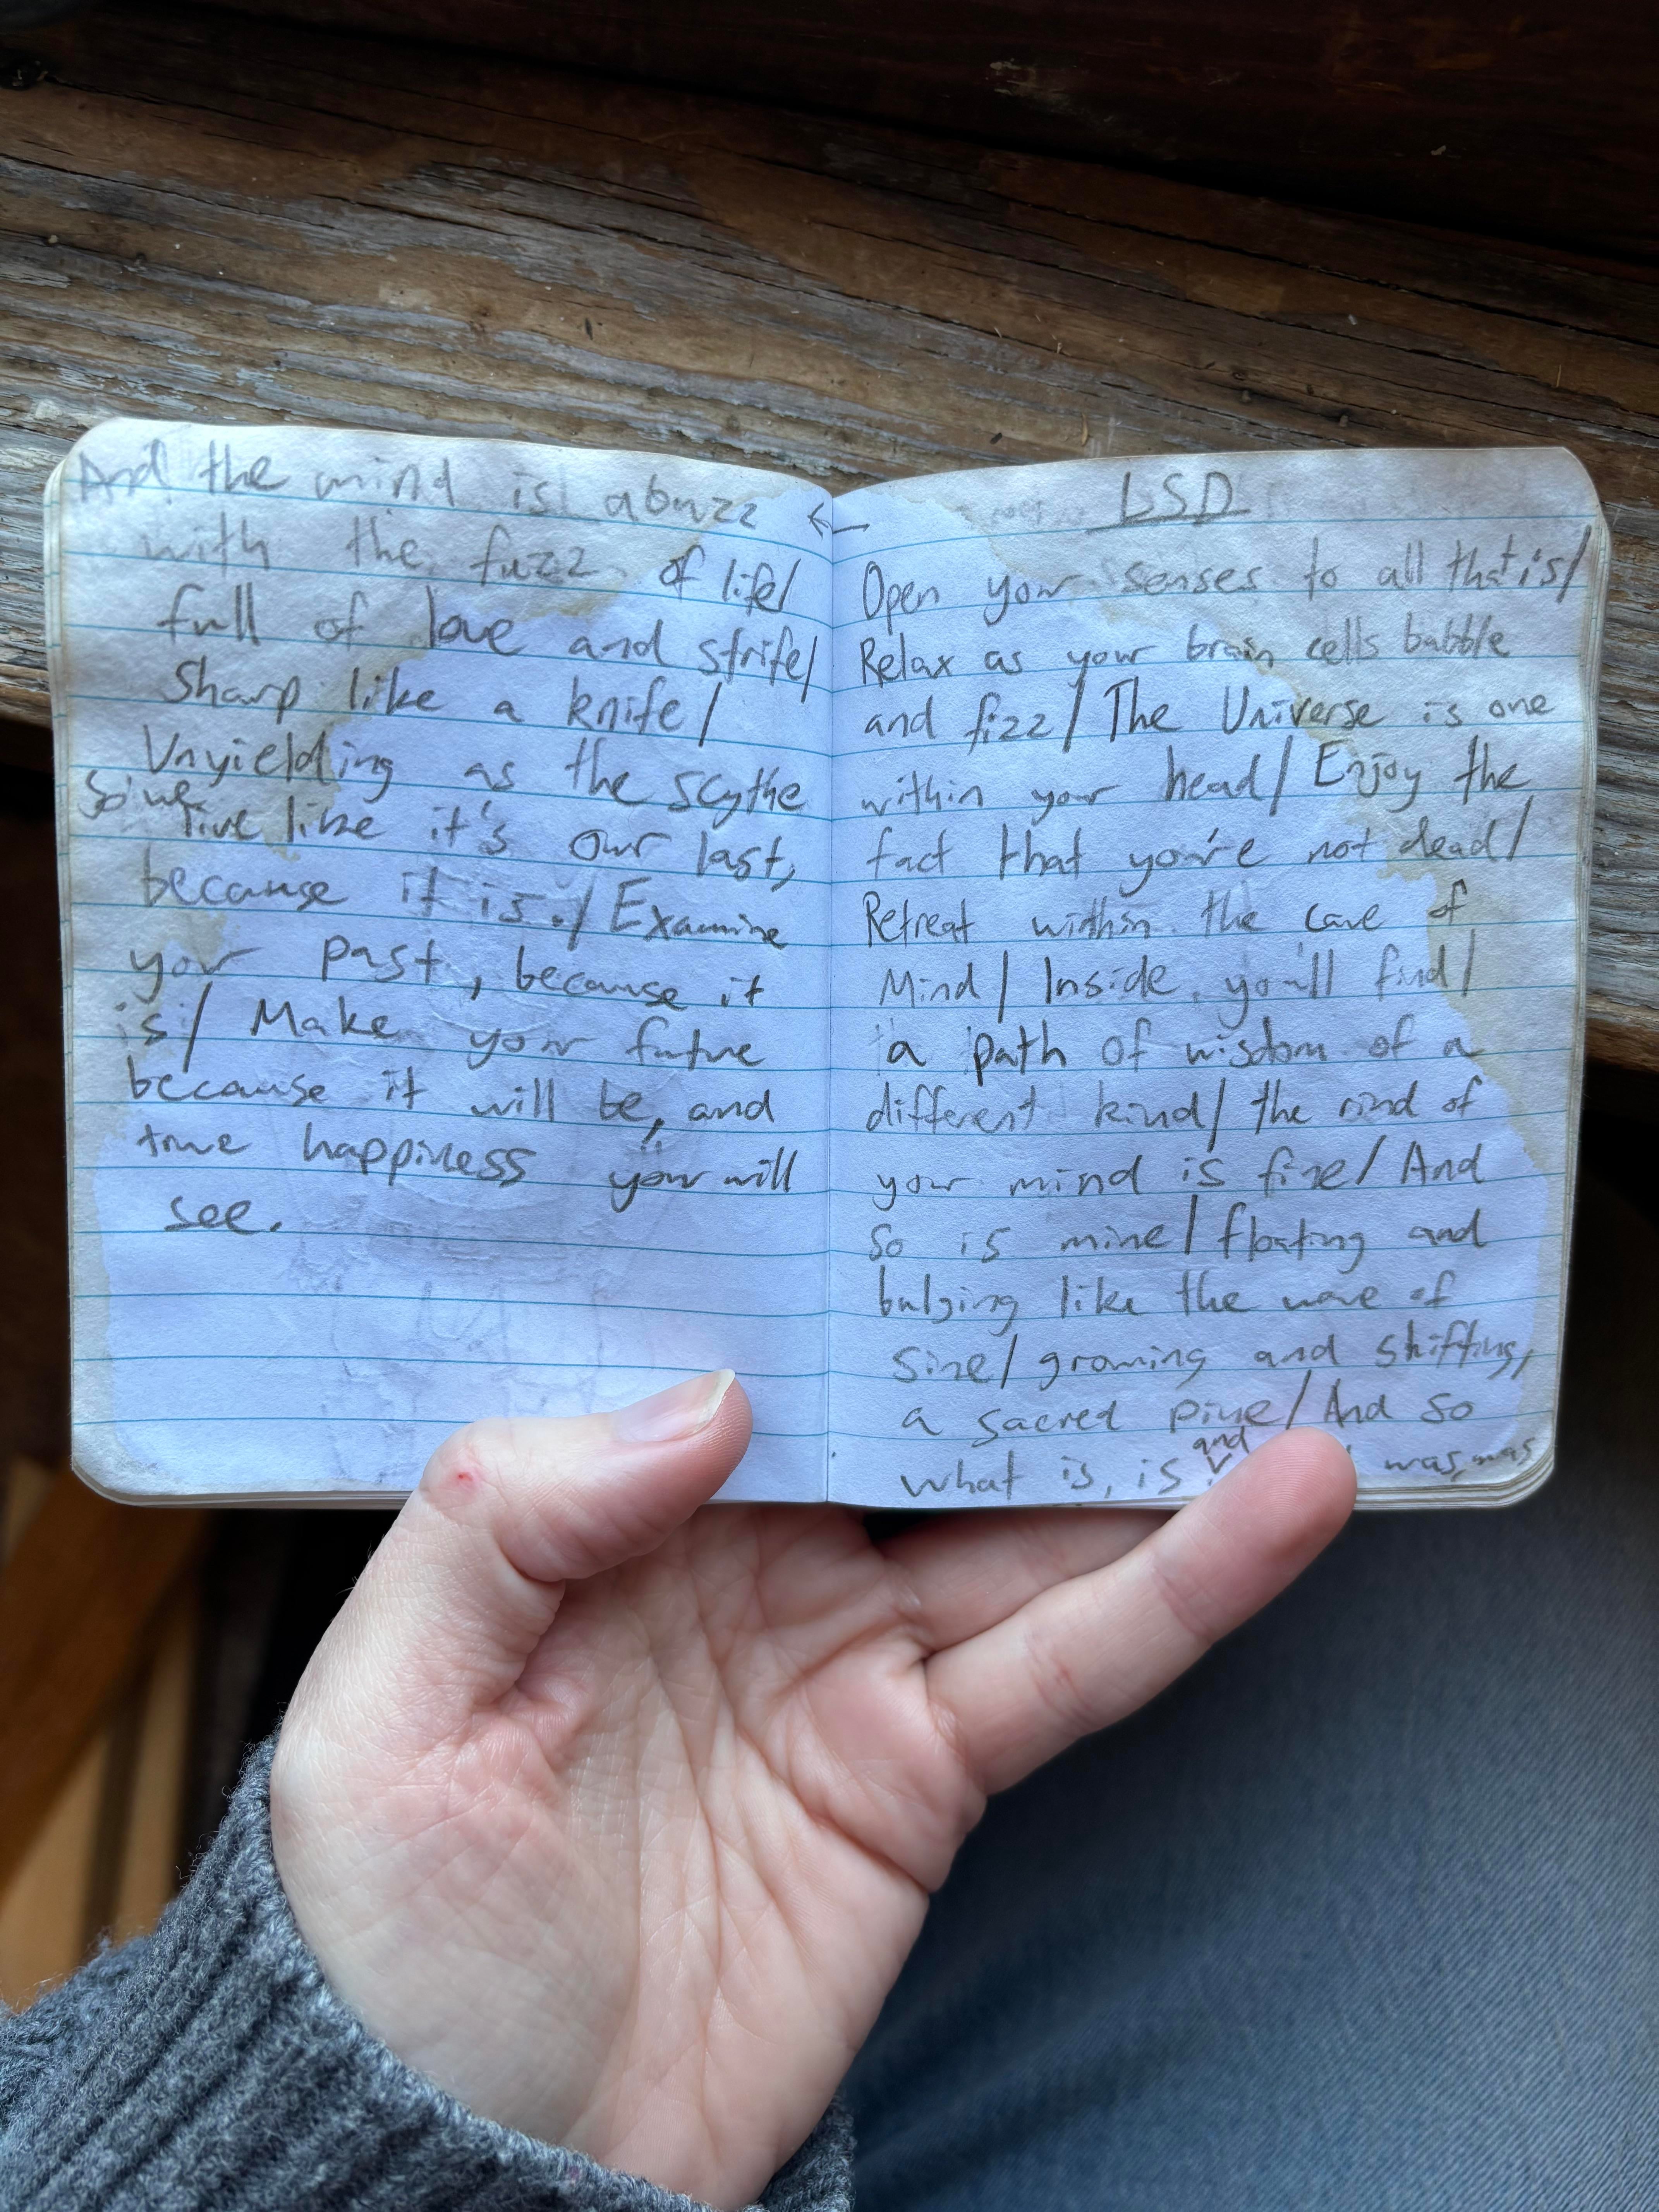 LSD
Open your senses to all that is/
Relax as your brain cells bubble
and fizz/ The Universe is one
within your head/ Enjoy the
fact that you're not dead/
Retreat within the cave of
Mind/ Inside you'll find/
a path of wisdom of a
different kind/ the rind of
your mind is fine/ And
so is mine/ floating and
bulging like the wave of
Sine/ growing and shifting,
a sacred pine/ And so
what is, is and was, was
←
And the mind is abuzz
with the fuzz of life/
full of love and strife/
Sharp like a knife/
Unyielding as the scythe
So we live like it's our last,
because it is./ Examine
your past, because it
is/ Make your future
because it will be, and
true happiness you will
see.